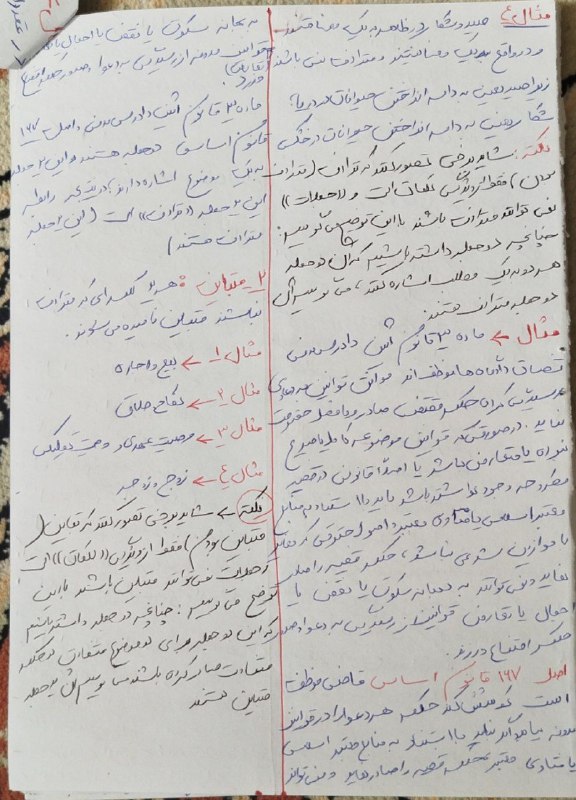 مثال ٤: صید و شکار در ظاهر به یک معنا هستند
و در واقع به یک معنا نیستند و مترادف نمی باشند
زیرا صید یعنی به دام انداختن حیوانات در دریا؛
شکار یعنی به دام انداختن حیوانات در خشکی
نکته: شاید برخی تصور کنند که ترادف (مترادف
بودن) فقط از ویژگی کلمات است و ((جملات))
نمی توانند مترادف باشند با این توضیح می گوییم:
چنانچه دو جمله داشته باشیم که آن دو جمله
هر دو به یک مطلب اشاره کنند، می گوییم آن
دو جمله مترادف هستند.
مثال ← ماده ۳ قانون آئین دادرسی مدنی
قضات دادگاه ها موظف اند موافق قوانین به دعاوی
رسیدگی کرده حکم مقتضی صادر و یا فصل خصومت
نمایند. در صورتی که قوانین موضوعه کامل یا صریح
نبوده یا متعارض باشند یا اصلاً قانونی در قضیه
مطروحه وجود نداشته باشد باید با استناد به منابع
معتبر اسلامی یا فتاوی معتبر و اصول حقوقی که مغایر
با موازین شرعی نباشد، حکم قضیه را صادر
نمایند و نمی توانند به بهانه سکوت یا نقص یا
اجمال یا تعارض قوانین از رسیدگی به دعوا و صدور
حکم امتناع ورزند.
اصل ۱۶۷ قانون اساسی قاضی موظف
است کوشش کند حکم هر دعوا را در قوانین
مدونه بیابد و اگر نیابد با استناد به منابع معتبر اسلامی
یا فتاوی معتبر حکم قضیه را صادر نماید و نمی تواند
به بهانه سکوت یا نقص یا اجمال یا
قوانین مدونه از رسیدگی به دعوا و صدور حکم امتناع
ورزد.
ماده ۳ قانون آئین دادرسی مدنی و اصل ۱۶۷
قانون اساسی دو جمله هستند و این دو جمله
به یک موضوع اشاره دارند؛ در نتیجه رابطه
این دو جمله ((ترادف)) است (این دو جمله
مترادف هستند)
۲_ متباین: هر دو کلمه ای که مترادف
نباشند متباین نامیده می شوند.
مثال ۱ ← بیع و اجاره
مثال ۲ ← نکاح و طلاق
مثال ۳ ← وصیت عهدی و وصیت تملیکی
مثال ٤ ← زوج و زوجه
نکته ← شاید برخی تصور کنند که تباین (
متباین بودن) فقط از ویژگی ((کلمات)) است
و جملات نمی توانند متباین باشند با این
توضیح می گوییم: چنانچه دو جمله داشته باشیم
که این دو جمله برای دو موضوع متفاوت دو حکم
متفاوت صادر کرده باشند می گوییم این دو جمله
متباین هستند